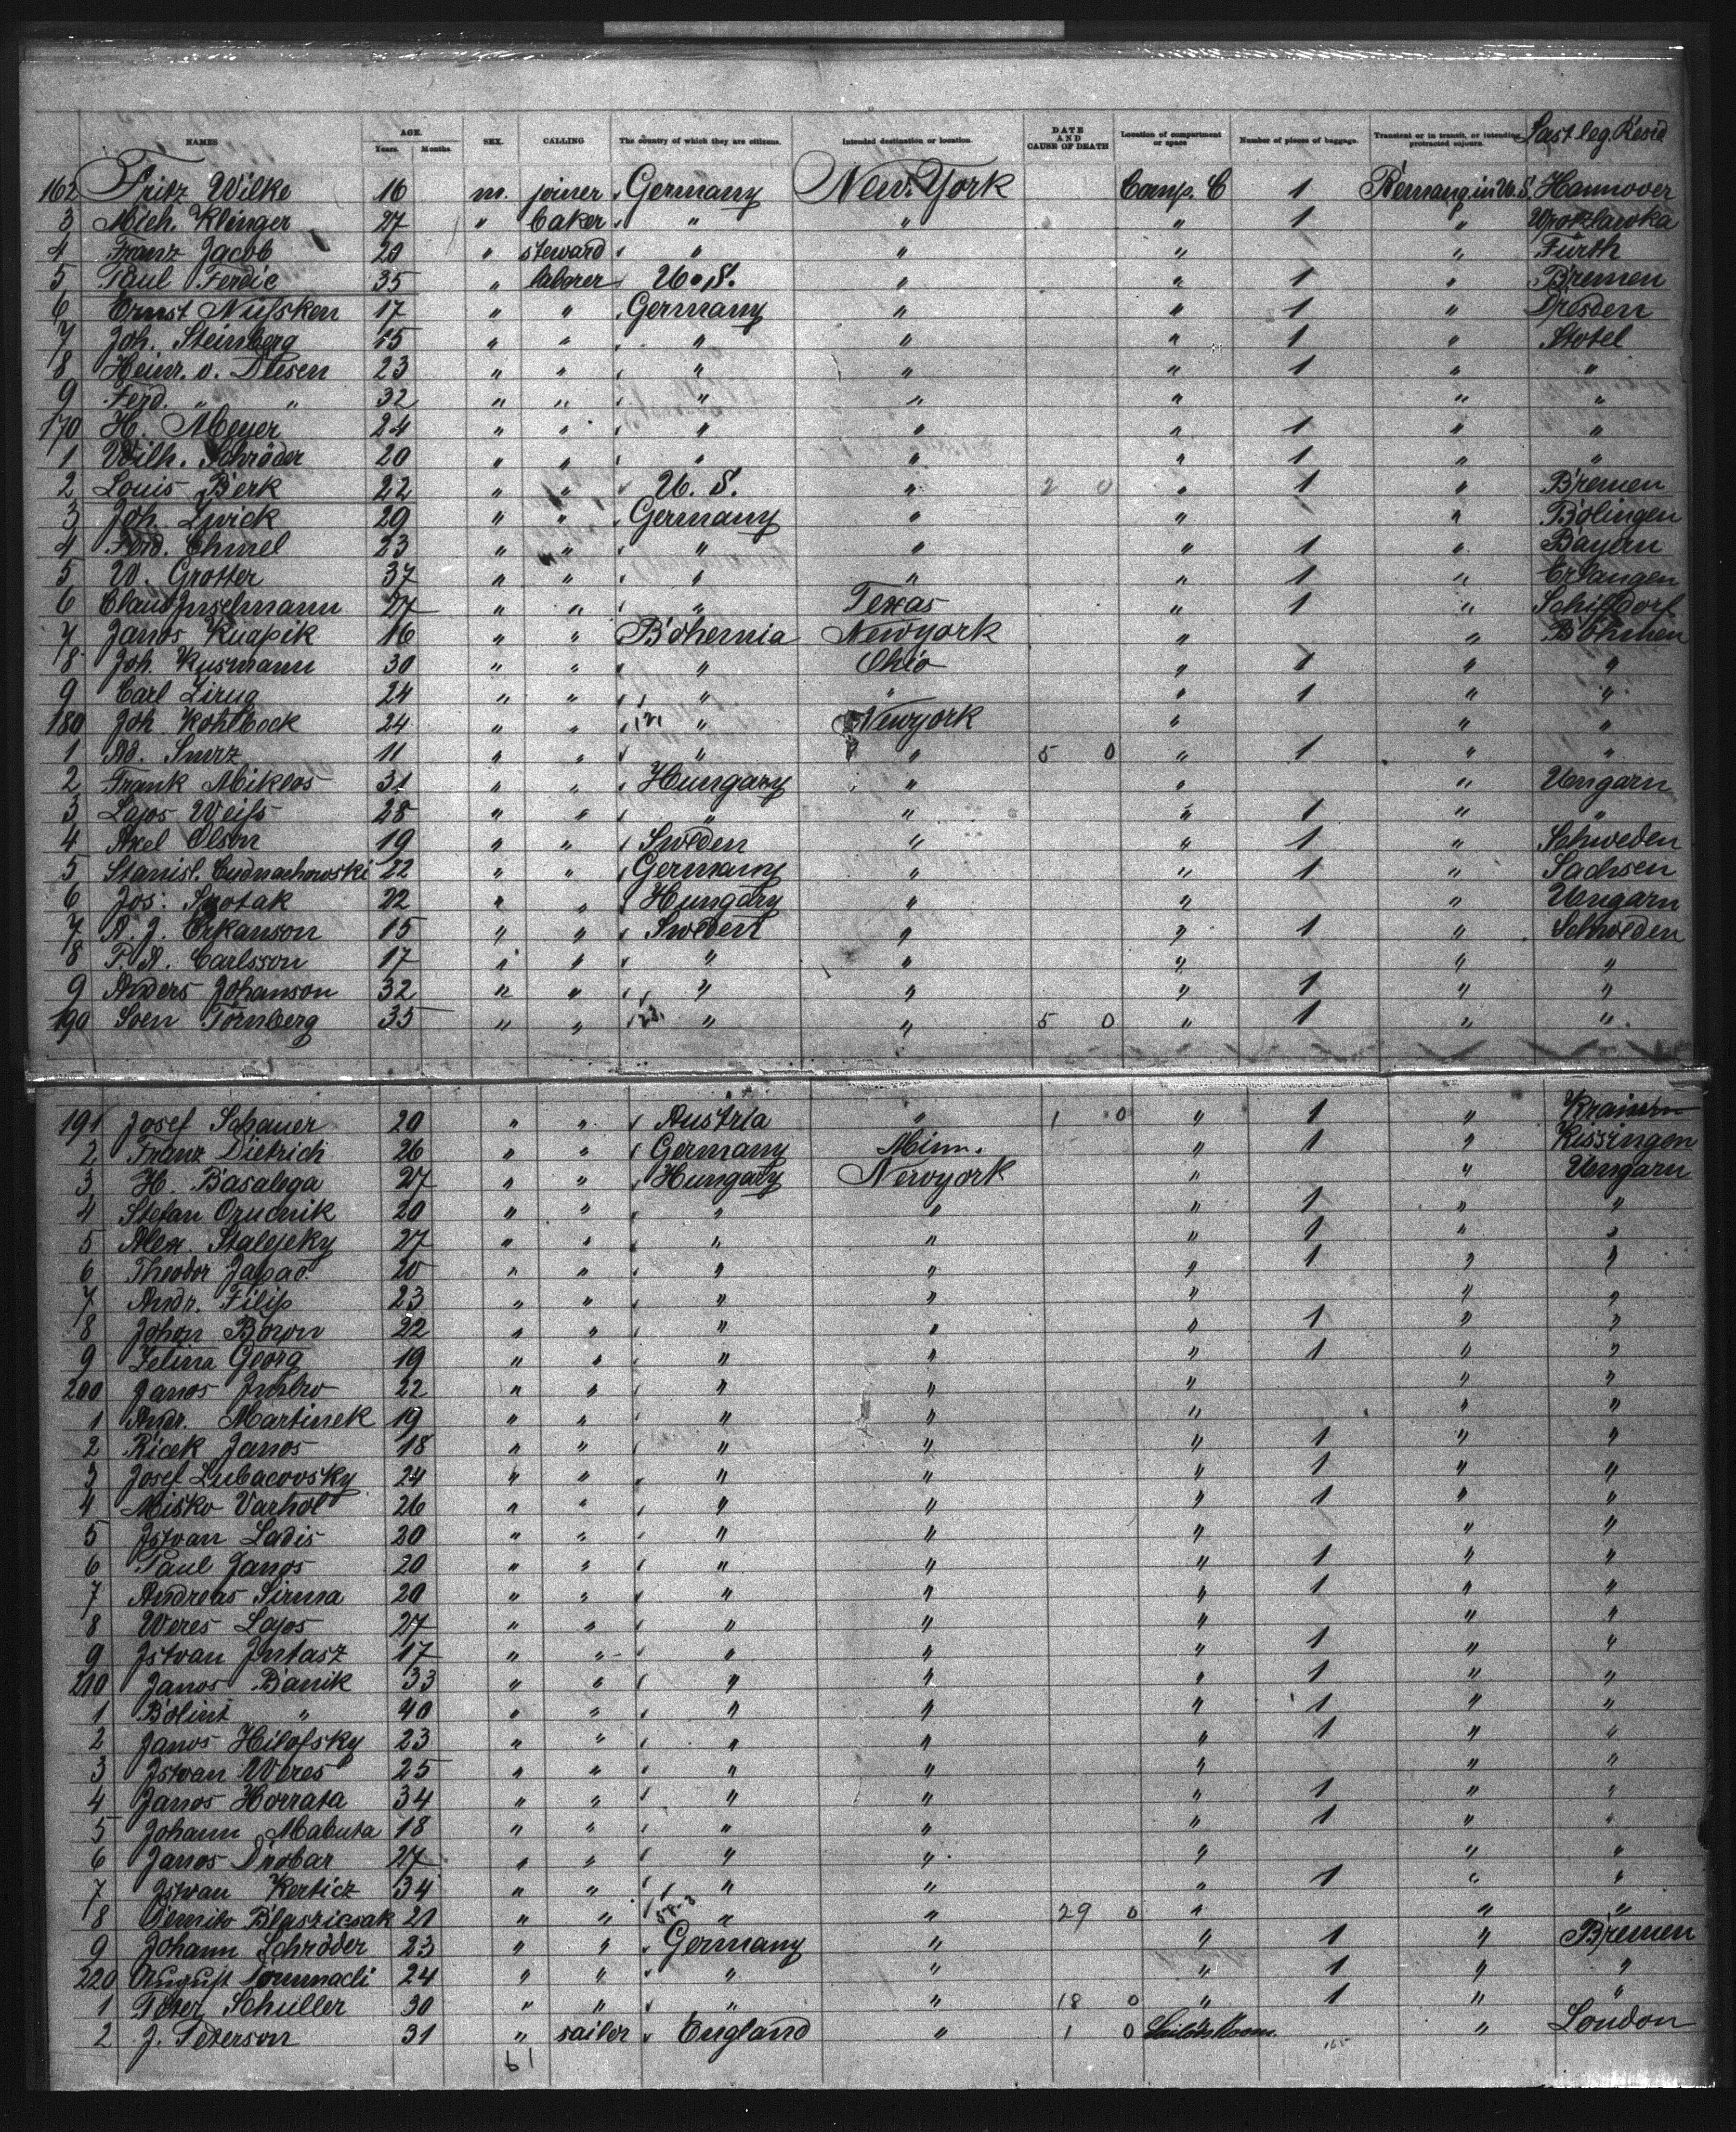 NAMES AGE. Years. Months. SEX. CALLING The country of which they are citizens. Intended destination or location. DATE AND CAUSE OF DEATH Location of compartment or space Number of pieces of baggage. Transient or in transit, or intending protracted sojourn. Last leg. Resid
162 Fritz Wilke 16 m. joiner Germany New York Comp. C 1 Hannover
3 Mich. Klinger 27 " baker " " " 1 "
4 Franz Jacob 29 " steward " " " " Fürth
5 Paul Ferdic 35 " laborer U.S. " " 1 " Bremen
6 Ernst Nüfsken 17 " " Germany " " 1 " Dresden
7 Joh. Steinberg 15 " " " " " 1 " Stotel
8 Heinr. v. Diesen 23 " " " " " 1 " "
9 Ferd. " " 32 " " " " " " "
170 H. Meyer 24 " " " " " 1 " "
1 Wilh. Schröder 20 " " " " " 1 " "
2 Louis Berk 22 " " U. S. " 2 0 " 1 " Bremen
3 Joh. Zwick 29 " " Germany " " " Bölingen
4 Ferd. Chmel 23 " " " " " 1 " Bayern
5 W. Grotter 37 " " " " " 1 " Erlangen
6 Claus Inselmann 27 " " " Texas " 1 " Schiffdorf
7 Janos Knapik 16 " " Bohemia Newyork " " Böhmen
8 Joh. Kusmann 30 " " " Ohio " 1 " "
9 Carl Zirug 24 " " " " " 1 " "
180 Joh. Kohlbock 24 " " 121 " Newyork " " "
1 Ad. Surz 11 " " " " 5 0 " 1 " "
2 Frank Miklos 31 " " Hungary " " " Ungarn
3 Lajos Weifs 28 " " " " " 1 " "
4 Axel Olson 19 " " Sweden " " 1 " Schweden
5 Stanisl. Cudnachowski 22 " " Germany " " 1 " Sachsen
6 Jos: Srotak 22 " " Hungary " " " Ungarn
7 A. J. Erkanson 15 " " Sweden " " 1 " Schweden
8 P. A. Carlsson 17 " " " " " " "
9 Anders Johanson 32 " " " " " 1 " "
190 Sven Törnberg 35 " " 23. " " 5 0 " 1 " "
191 Josef Schauer 20 " " Austria " 1 0 " 1 " Kraimin
2 Franz Dietrich 26 " " Germany Minn. " 1 " Kissingen
3 H. Basalega 27 " " Hungary Newyork " " Ungarn
4 Stefan Orucnik 20 " " " " " 1 " "
5 Alex. Stalejeky 27 " " " " " 1 " "
6 Theodor Japao 20 " " " " " 1 " "
7 Andr. Filip 23 " " " " " " "
8 Johon Boron 22 " " " " " 1 " "
9 Zelina Georg 19 " " " " " 1 " "
200 Janos Imbro 22 " " " " " " "
1 Andr. Martinek 19 " " " " " " "
2 Ricek Janos 18 " " " " " 1 " "
3 Josef Lubacovsky 24 " " " " " 1 " "
4 Misko Varhol 26 " " " " " 1 " "
5 Istvan Ladis 20 " " " " " " "
6 Paul Janos 20 " " " " " 1 " "
7 Andreas Sirma 20 " " " " " 1 " "
8 Weres Lajos 27 " " " " " " "
9 Istvan Juhasz 17 " " " " " 1 " "
210 Janos Banik 33 " " " " " 1 " "
1 Bolint " 40 " " " " " 1 " "
2 Janos Hilofsky 23 " " " " " 1 " "
3 Istvan Weres 25 " " " " " " "
4 Janos Horrata 34 " " " " " 1 " "
5 Johann Mabuta 18 " " " " " 1 " "
6 Janos Drobar 27 " " " " " " "
7 Istvan Kerticz 34 " " " " " 1 " "
8 Demito Blaszicsak 21 " " " " 29 0 " " "
9 Johann Schröder 23 " " Germany " " 1 " Bremen
220 August 24 " " " " " 1 " "
1 Peter Schuller 30 " " " " 18 0 " 1 " "
2 J. Peterson 31 " sailor England " 1 0 Sailors Room. " London
61